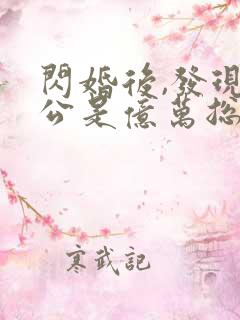 閃婚後,發現
公是億萬總
寒武記